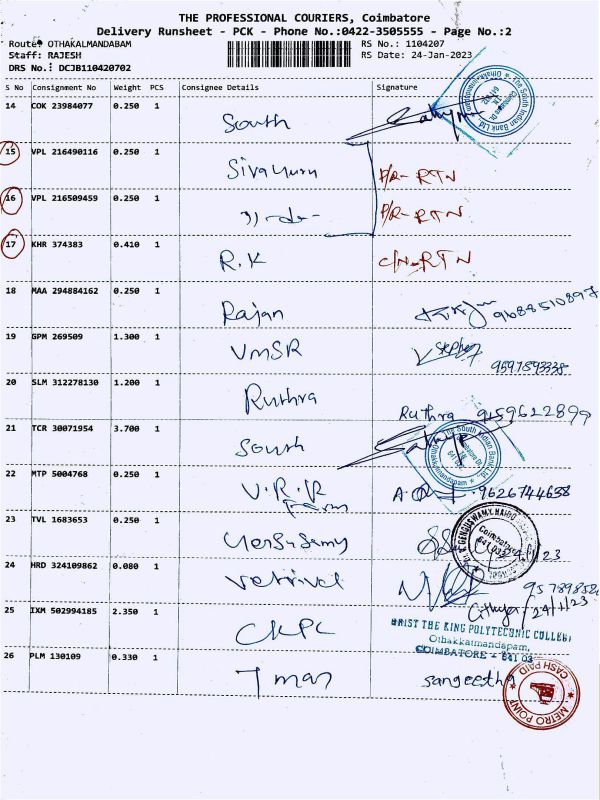 THE PROFESSIONAL COURIERS, Coimbatore
Delivery Runsheet - PCK - Phone No.:0422-3505555 - Page No.:2
Route: OTHAKALMANDABAM RS No.: 1104207
Staff: RAJESH RS Date: 24-Jan-2023
DRS No.: DCJB110420702
S No Consignment No Weight PCS Consignee Details Signature
14 COK 23984077 0.250 1 South
The South Indian Bank Ltd
15 VPL 216490116 0.250 1 P/R-RTN
16 VPL 216509459 0.250 1 P/R-RTN
17 KHR 374383 0.410 1 R.K C/N-RTN
18 MAA 294884162 0.250 1 Rajan 9688510897
19 GPM 269509 1.300 1 VMSR Stephen
9597593338
20 SLM 312278130 1.200 1 Ruthra Ruthra 9159612899
21 TCR 30071954 3.700 1 South
The South Indian Bank Ltd
Othakkalmandapam
22 MTP 5004768 0.250 1 V.R.R Farm 9626744638
23 TVL 1683653 0.250 1
Coimbatore
24 HRD 324109862 0.080 1 Vetrivel
24/1/23
25 IXM 502994185 2.350 1 CKPC
HRIST THE KING POLYTECNIC COLLEG
Othakkatmandapam,
COIMBATORE - 641 03
26 PLM 130109 0.330 1 T man Sangeetha
METRO POINT
CASH PAID